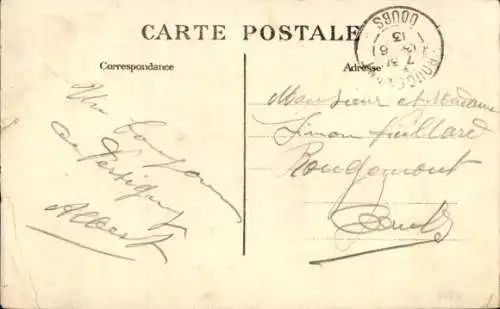 CARTE POSTALE
Correspondance
Adresse
ROUGEMONT
7 31
13 6
13
DOUBS
Un bonjour
de
Albert
Monsieur et Madame
Simon
Rougemont
Doubs